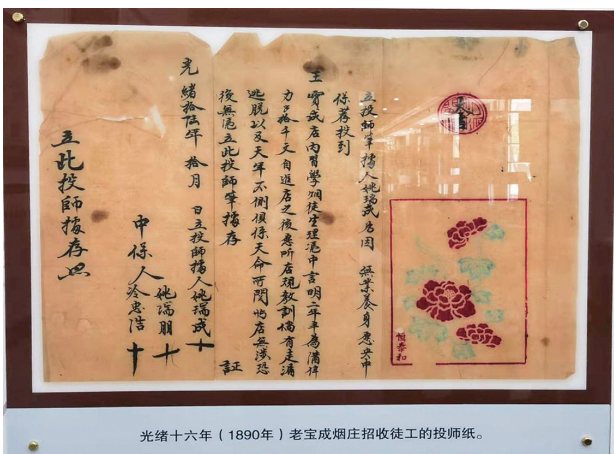 立投師筆據人姚瑞成 因 無業養身 央中
保薦投到
王寶成店内習學烟徒生理憑中言明二年半為滿俸
力 拾千文自進店之後 听店規教訓倘有走漏
逃脱以及天年不側俱係天命所關 店無涉恐
後無憑立此投師筆據存 証
光緒拾陸年 拾月 日立投師據人姚瑞成十
中保人 姚瑞朋十
惠浩十
立此投師據存照
泰和
光绪十六年（1890年）老宝成烟庄招收徒工的投师纸。